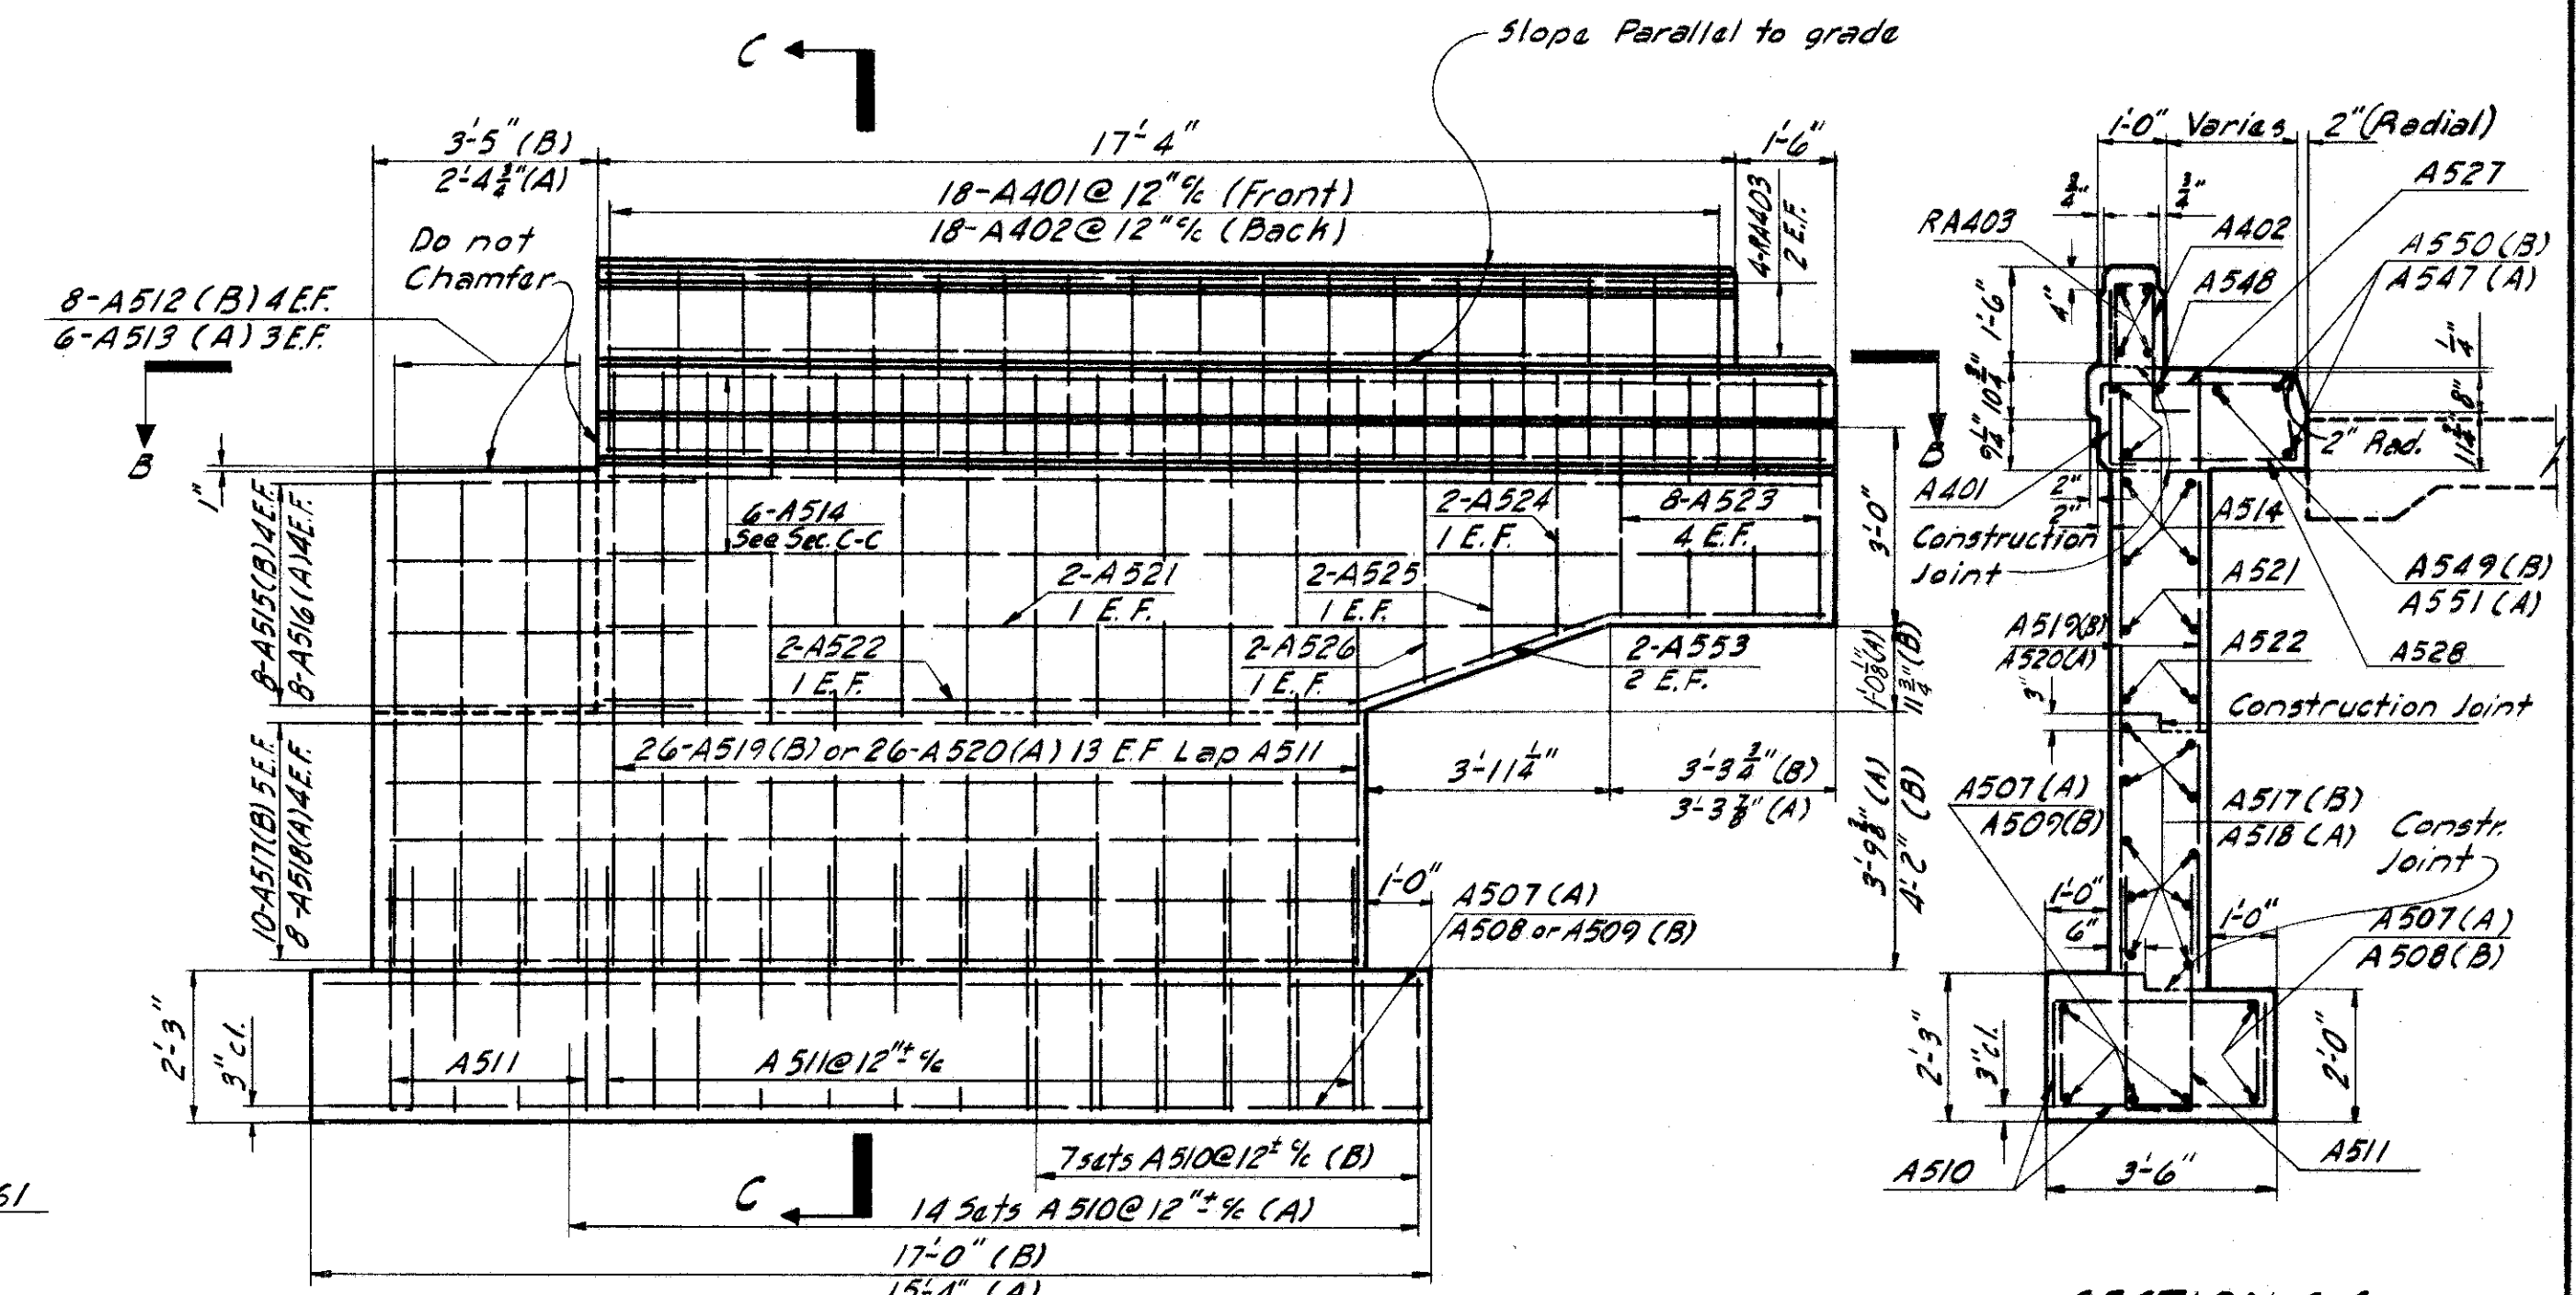 Slope Parallel to grade
C
3'-5" (B)
2'-4 3/4" (A)
17'-4"
1'-6"
18-A401@ 12" c/c (Front)
18-A402@ 12" c/c (Back)
4-RA403
2 E.F.
Do not
Chamfer
8-A512 (B) 4 E.F.
6-A513 (A) 3 E.F.
B
B
1"
8-A515(B) 4 E.F.
8-A516(A) 4 E.F.
6-A514
See Sec. C-C
2-A524
1 E.F.
8-A523
4 E.F.
3'-0"
2-A521
1 E.F.
2-A525
1 E.F.
2-A522
1 E.F.
2-A526
1 E.F.
2-A553
2 E.F.
1'-0 1/8" (A)
11 3/4" (B)
10-A517(B) 5 E.F.
8-A518(A) 4 E.F.
26-A519(B) or 26-A520(A) 13 E.F. Lap A511
3'-11 1/4"
3'-3 3/4" (B)
3'-3 7/8" (A)
3'-9 3/8" (A)
4'-2" (B)
1'-0"
A507 (A)
A508 or A509 (B)
2'-3"
3" cl.
A511
A511@12"± c/c
7 sets A510@12± c/c (B)
C
14 Sets A510@12"± c/c (A)
17'-0" (B)
15'-4" (A)
61
1'-0"
Varies
2" (Radial)
3/4"
3/4"
A527
RA403
A402
A550 (B)
A547 (A)
A548
4"
1'-6"
10 3/4"
9 1/4"
1/4"
8"
11 3/4"
2" Rad.
A401
2"
2"
Construction
Joint
A514
A549 (B)
A551 (A)
A521
A519(B)
A520(A)
A522
A528
3"
Construction Joint
A507(A)
A509(B)
A517 (B)
A518 (A)
Constr.
Joint
1'-0"
6"
1'-0"
A507(A)
A508(B)
2'-3"
3" cl.
2'-0"
A510
3'-6"
A511